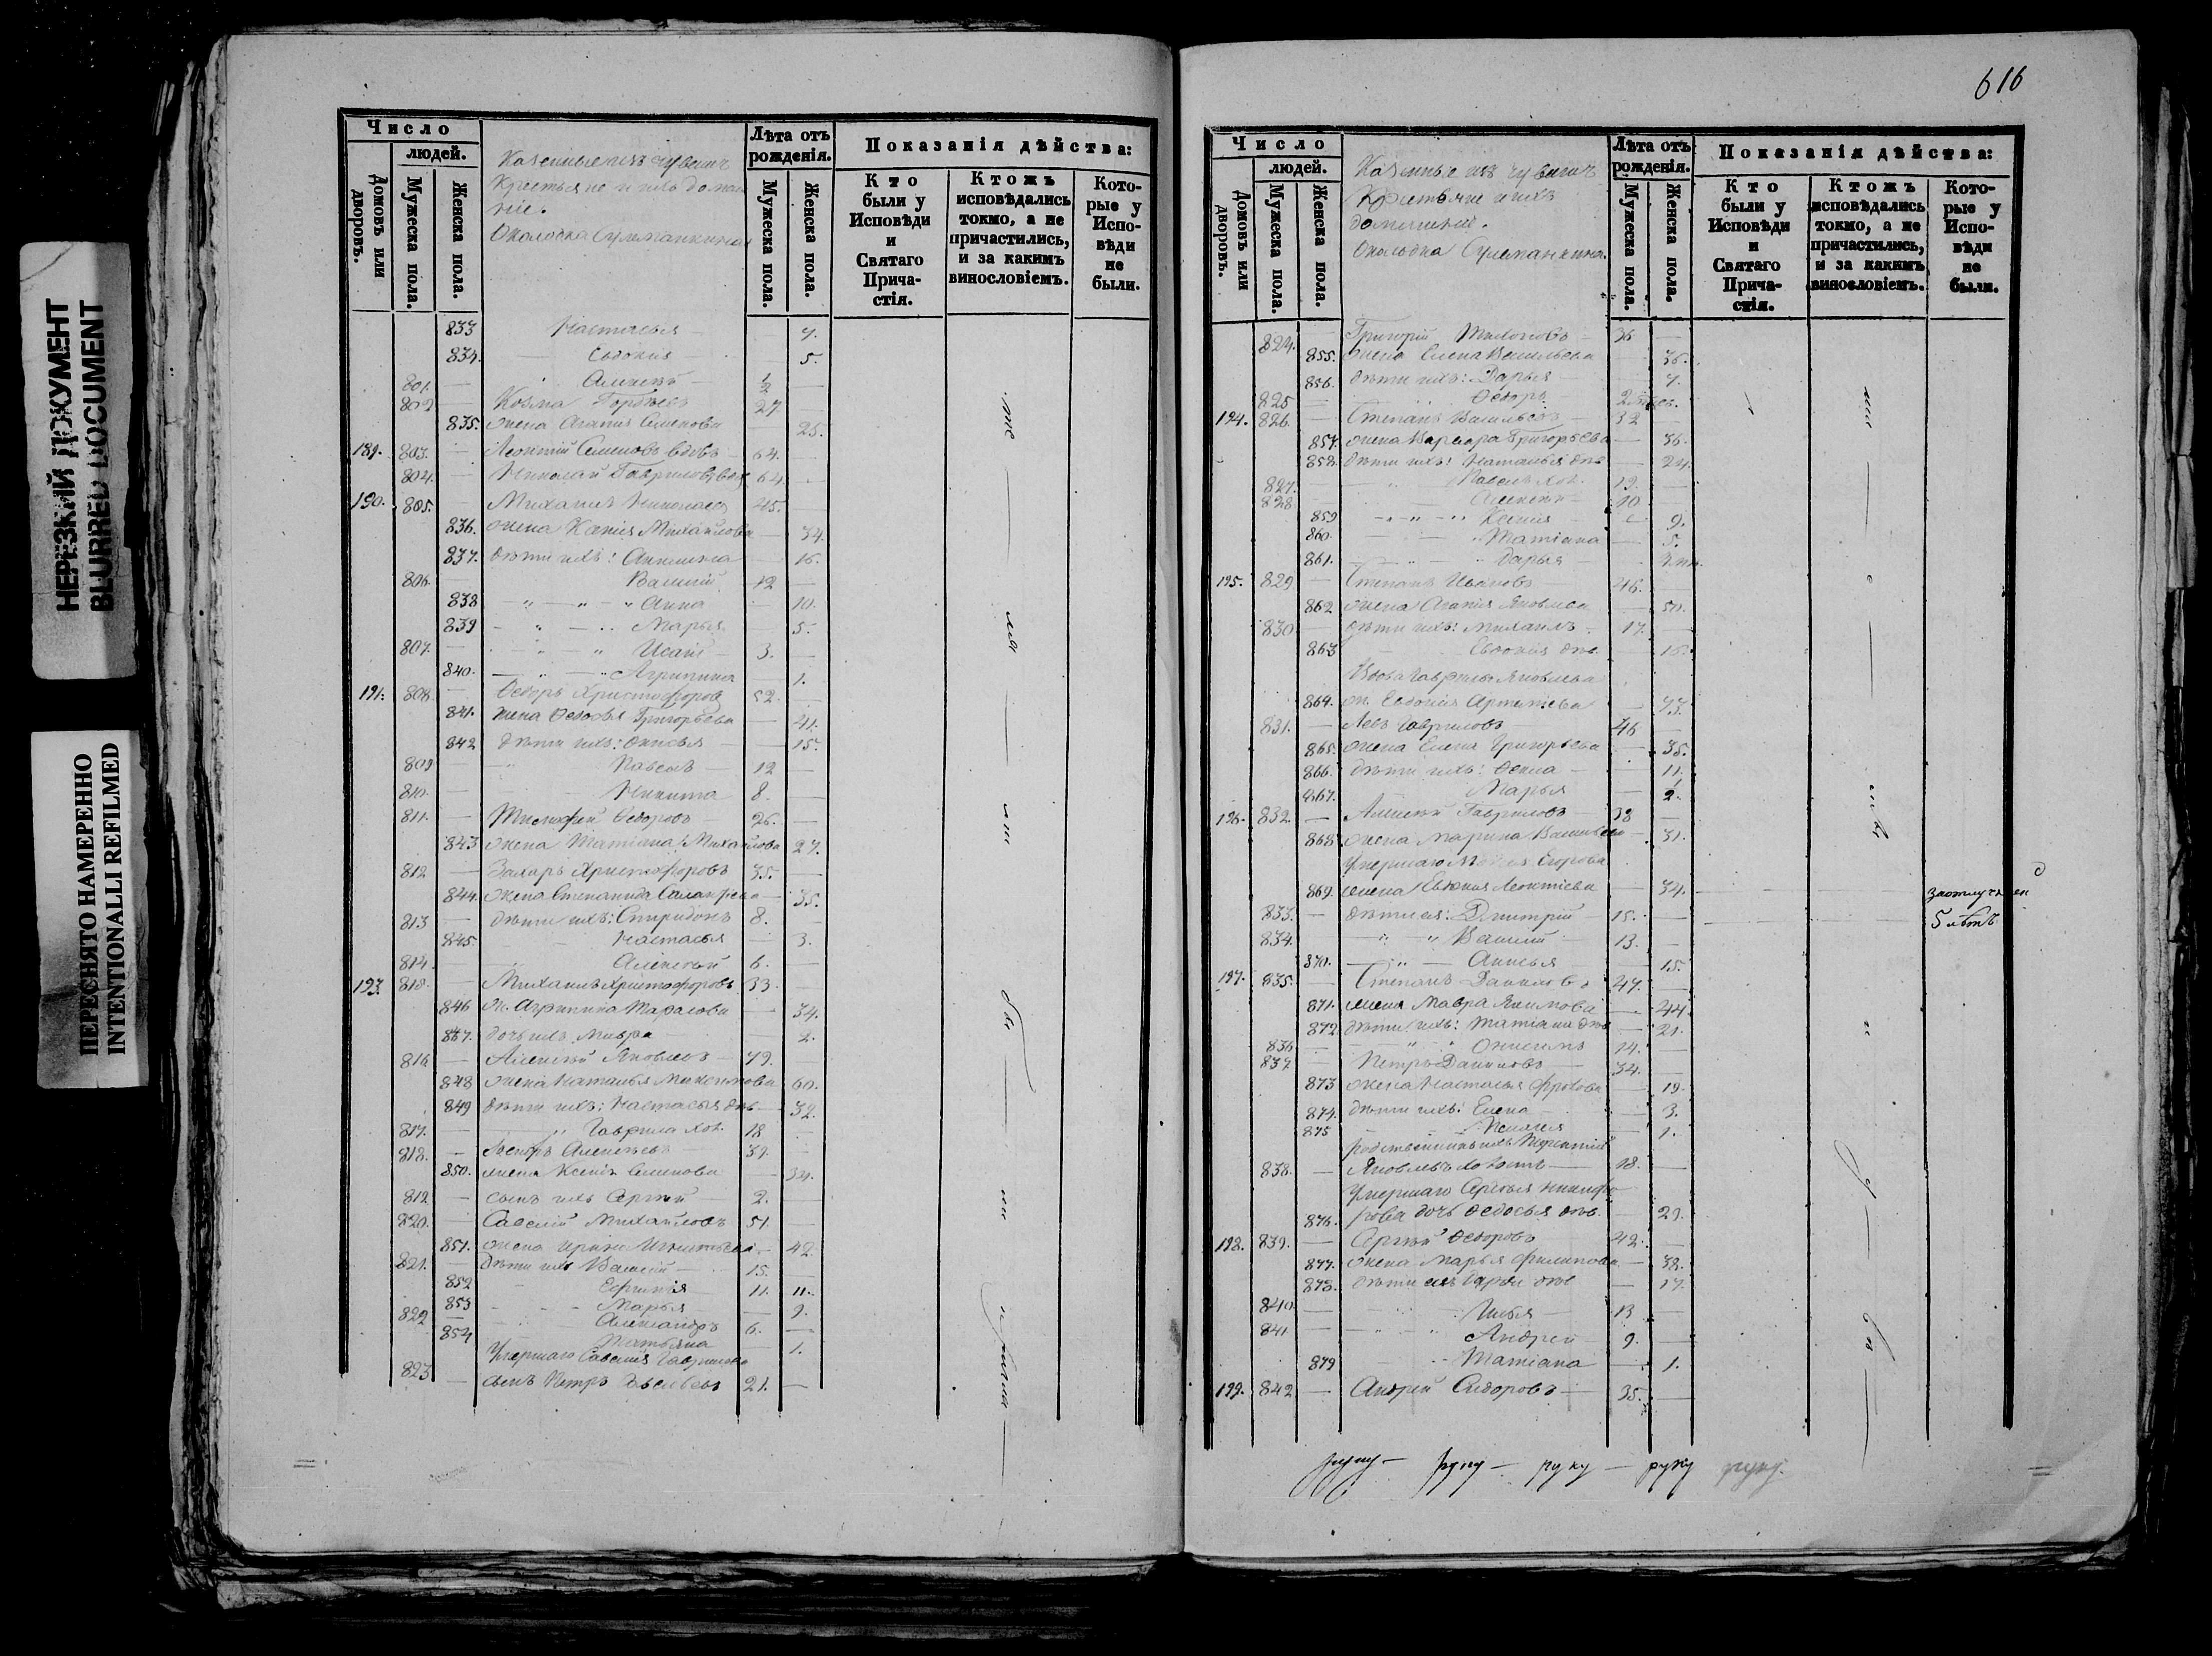 НЕРЕЗКИЙ ДОКУМЕНТ
BLURRED DOCUMENT
ПЕРЕСНЯТО НАМЕРЕННО
INTENTIONALLI REFILMED
Число
людей.
Домовъ или дворовъ.
Мужеска пола.
Женска пола.
Казенные изъ чувашъ
Крестьяне и ихъ домаш
ніе.
Околодка Сулеманкина
Лѣта отъ рожденія.
Мужеска пола.
Женска пола.
Показанія дѣйства:
Кто были у Исповѣди и Святаго Прича-стія.
Ктожъ исповѣдались токмо, а не причастились, и за какимъ винословіемъ.
Кото-рые у Испо-вѣди не были.
833 Настасья 7.
834. Евдокія 5.
801. Алексѣй 1/2
802 Козма 27.
835. жена Агапія Семенова 25.
189. 803. Леонтій Семеновъ вдовъ 64.
804. Николай Гавриловъ вдов 64.
190. 805. Михаилъ Николаевъ 45.
836. жена Ксенія Михайлова 34.
837. дѣти ихъ: 16.
806. Василій 12
838 " " " Анна 10.
839 " Марья 5.
807. " " Исай 3.
840. " " Агрипина 1.
191. 808. Ѳедоръ Христофоровъ 52.
841. жена Ѳедосья Григорьева 41.
842 дѣти ихъ: 15.
809 Павелъ 12
810. Никита 8.
811. Тимофей Ѳедоровъ 26.
843 жена Татіана Михайлова 27.
812 Захаръ Христофоровъ 35.
844. жена Степанида 35.
813 дѣти ихъ: Спиридонъ 8.
845. Настасья 3.
814. Алексѣй 6.
193. 815. Михаилъ Христофоровъ 33.
846 ж. Агрипина Тарасова 34.
847. дочь ихъ Мавра 2.
816. Алексѣй Яковлевъ 79.
848 жена Наталья 60.
849 дѣти ихъ: Настасья дѣв 32.
817. " Гаврила хол. 18
818. Алексѣевъ 39.
850. жена Ксенія Семенова 34.
819 сынъ ихъ Сергѣй 2.
820. Савелій Михайловъ 51.
851. жена Ирина 42
821. дѣти ихъ Василій 15.
852 11. 11.
853 Марья 9.
822 Александръ 6.
854 Татьяна 1.
Умершаго Савелія Гаврилова
823 сынъ Петръ Савельевъ 21.
616
Число
людей.
Домовъ или дворовъ.
Мужеска пола.
Женска пола.
Казенные изъ чувашъ
Крестьяне и ихъ
домашніе.
Околодка Сулеманкина.
Лѣта отъ рожденія.
Мужеска пола.
Женска пола.
Показанія дѣйства:
Кто были у Исповѣди и Святаго Прича-стія.
Ктожъ исповѣдались токмо, а не причастились, и за какимъ винословіемъ.
Кото-рые у Испо-вѣди не были.
824. Григорій 36
855. жена Елена Васильева 36.
856. дѣти ихъ: Дарья 7.
825 Ѳедоръ
194. 826. Степанъ Васильевъ 32
857. жена Варвара Григорьева 36.
858. дѣти ихъ: Наталья дѣв 24.
827. " Павелъ хол. 19.
828 Алексѣй 10.
859 " " " Ксенія 9.
860. " Татіана 5.
861. " Дарья
195. 829 Степанъ Ивановъ 46.
862 жена Агапія Яковлева 50.
830 дѣти ихъ: Михаилъ 17.
863 Евдокія дѣв. 16.
Вдова Гаврилы Яковлева
864. ж. Евдокія Артемьева 73.
831. Левъ Гавриловъ 46
865. жена Елена Григорьева 35.
866. дѣти ихъ: 11.
867. Марья 2.
196. 832. Алексѣй Гавриловъ 38
868 жена Марина Васильева 31.
Умершаго Егорова
869. жена Евдокія Леонтіева 34. за отлученіем 5 лѣтъ
833. дѣти ея: Дмитрій 15.
834. " " Василій 13.
870. " Анисья 15.
197. 835. Степанъ Даниловъ 47.
871. жена Мавра Якимова 44.
872 дѣти ихъ: Татіана дѣв 21.
836 " " Онисимъ 14.
837 Петръ Даниловъ 34.
873 жена Настасья Фролова 19.
874. дѣти ихъ: Елена 3.
875 Пелагея 1.
родственникъ ихъ
838. Яковлевъ холостъ 18.
Умершаго Сергѣя Никифо
876. рова дочь Ѳедосья дѣв. 29.
198. 839. Сергѣй Ѳедоровъ 42.
877. жена Марья Филипова 38.
878. дѣти ихъ Дарья дѣв 17.
840. Илья 13
841. " " Андрей 9.
879 " Татіана 1.
199. 842 Андрей Сидоровъ 35.
руку — руку — руку — руку руку.